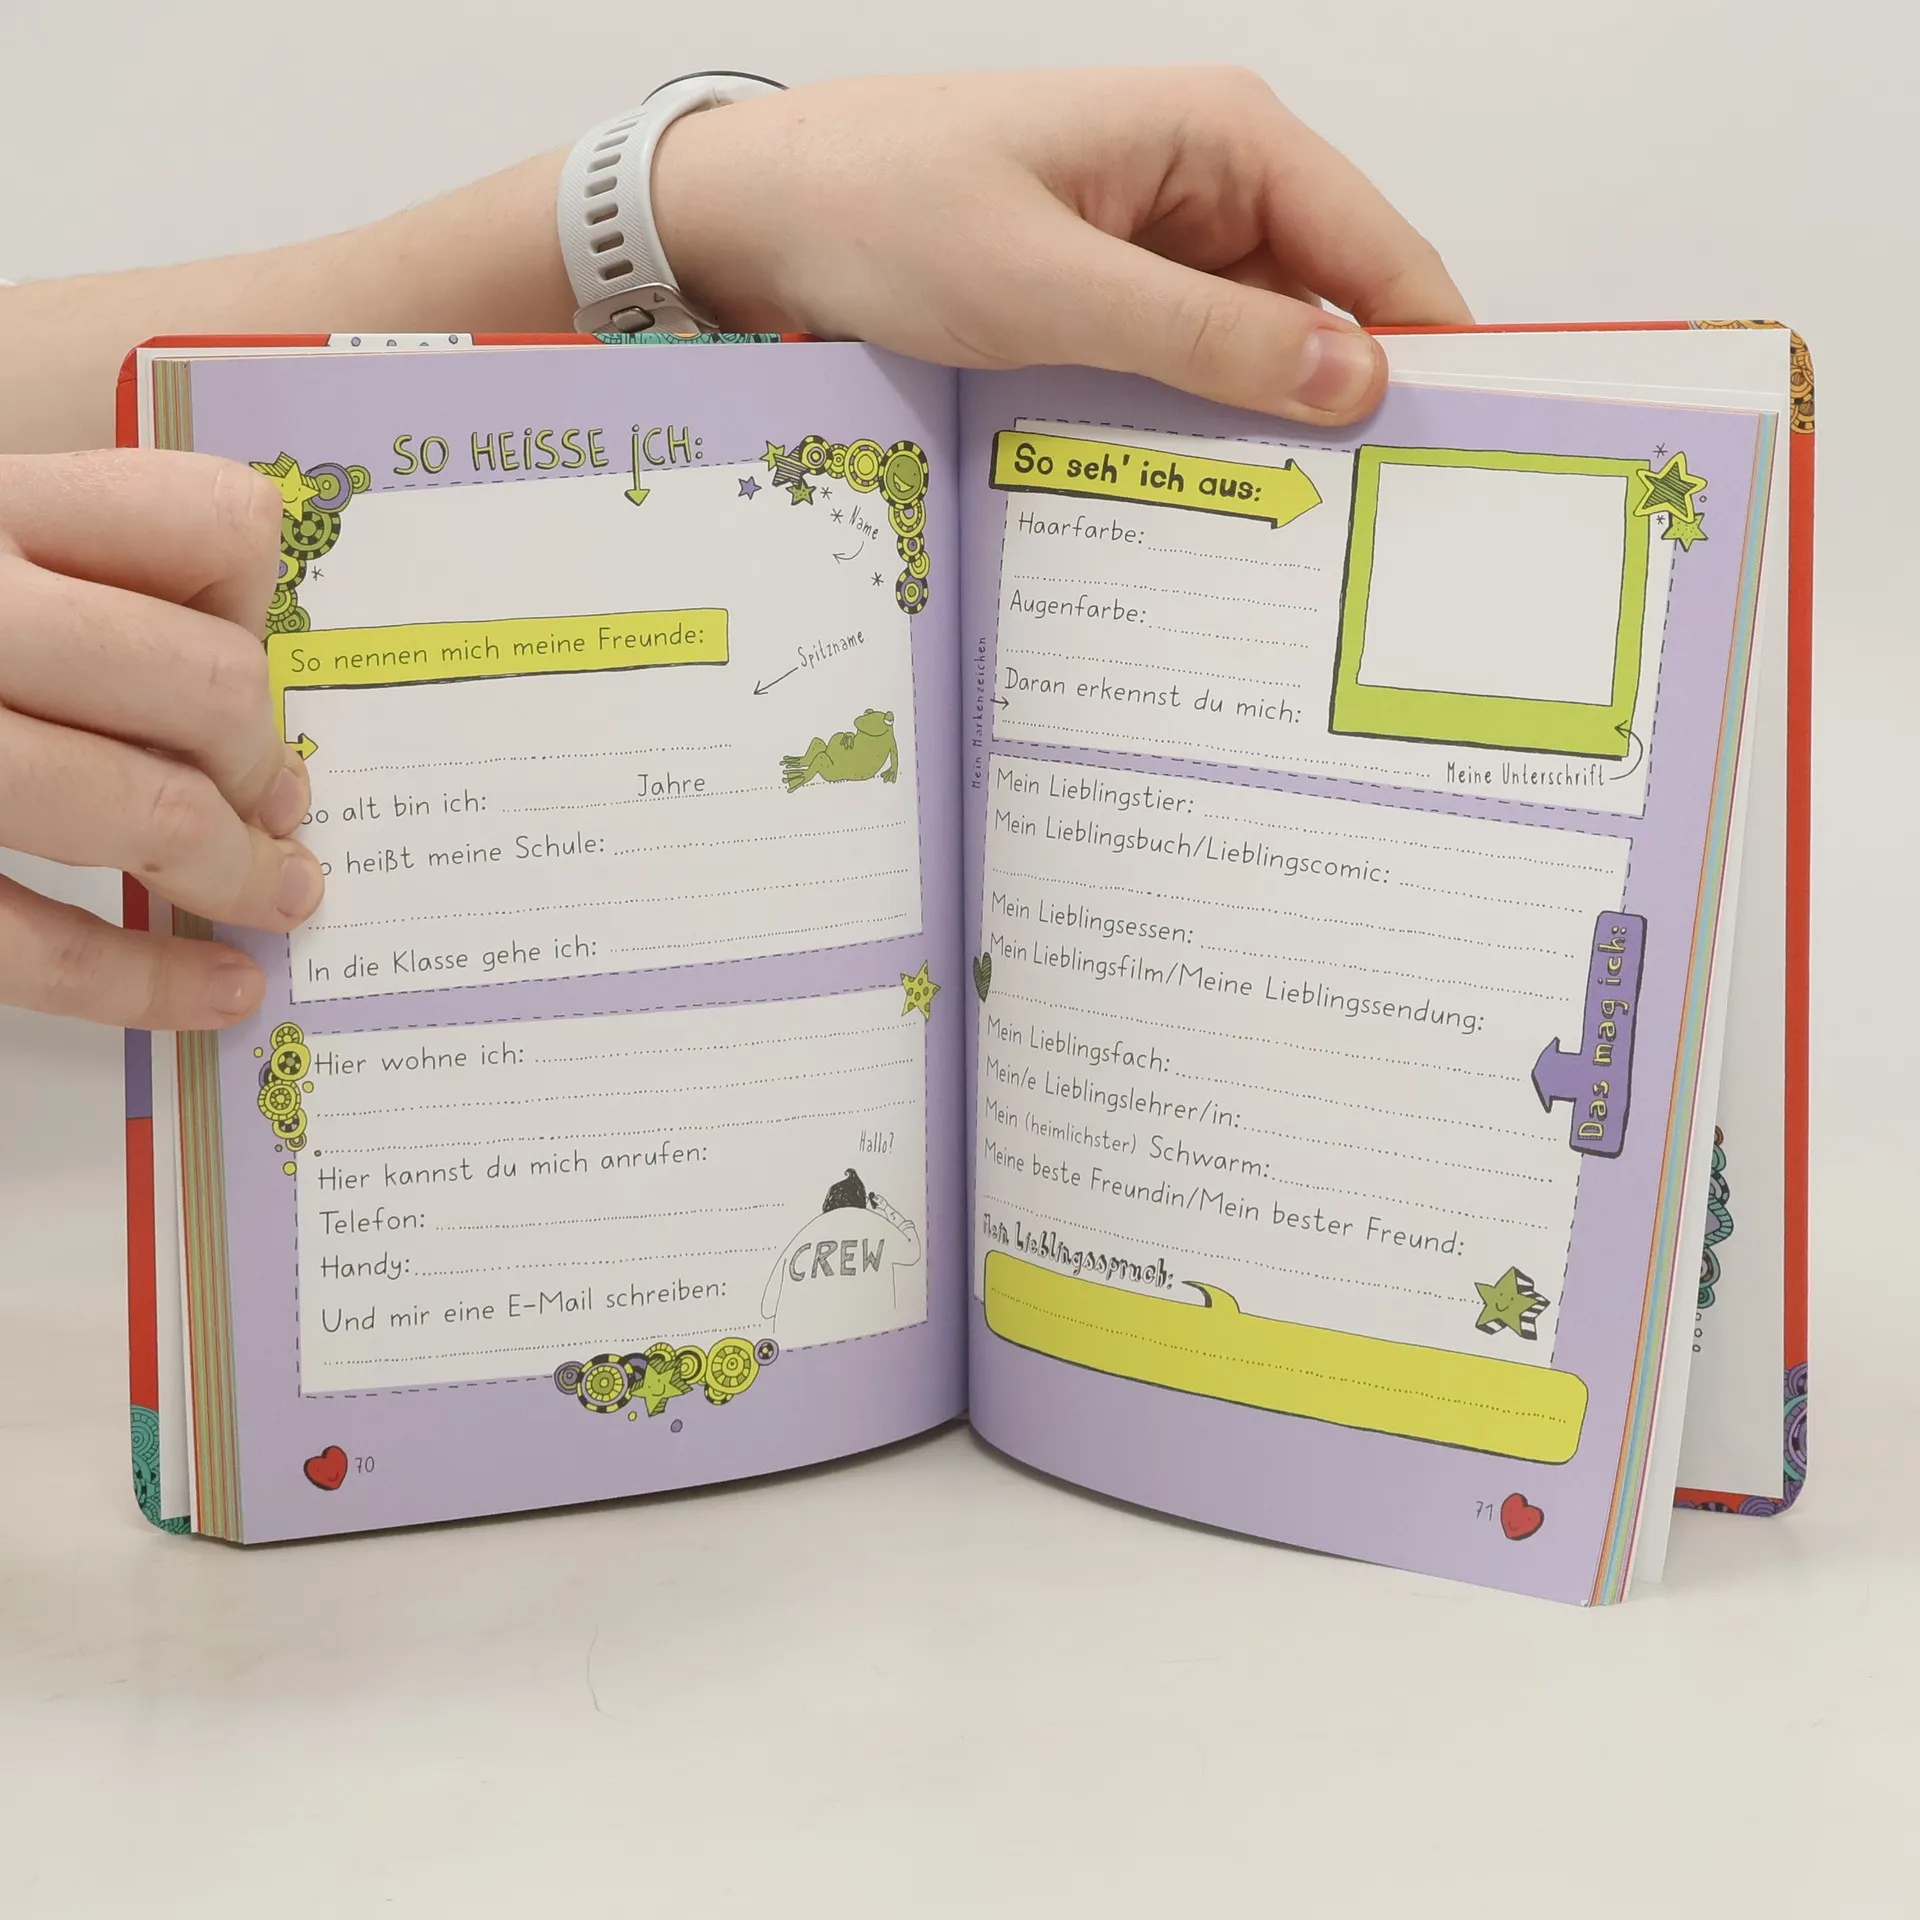 SO HEISSE ICH:
* Name
So nennen mich meine Freunde:
Spitzname
So alt bin ich: Jahre
heißt meine Schule:
In die Klasse gehe ich:
Hier wohne ich:
Hier kannst du mich anrufen:
Hallo?
Telefon:
CREW
Handy:
Und mir eine E-Mail schreiben:
70
So seh' ich aus:
Haarfarbe:
Augenfarbe:
Daran erkennst du mich:
Mein Markenzeichen
Meine Unterschrift
Mein Lieblingstier:
Mein Lieblingsbuch/Lieblingscomic:
Mein Lieblingsessen:
Mein Lieblingsfilm/Meine Lieblingssendung:
Das mag ich:
Mein Lieblingsfach:
Mein/e Lieblingslehrer/in:
Mein (heimlichster) Schwarm:
Meine beste Freundin/Mein bester Freund:
Mein Lieblingsspruch:
71